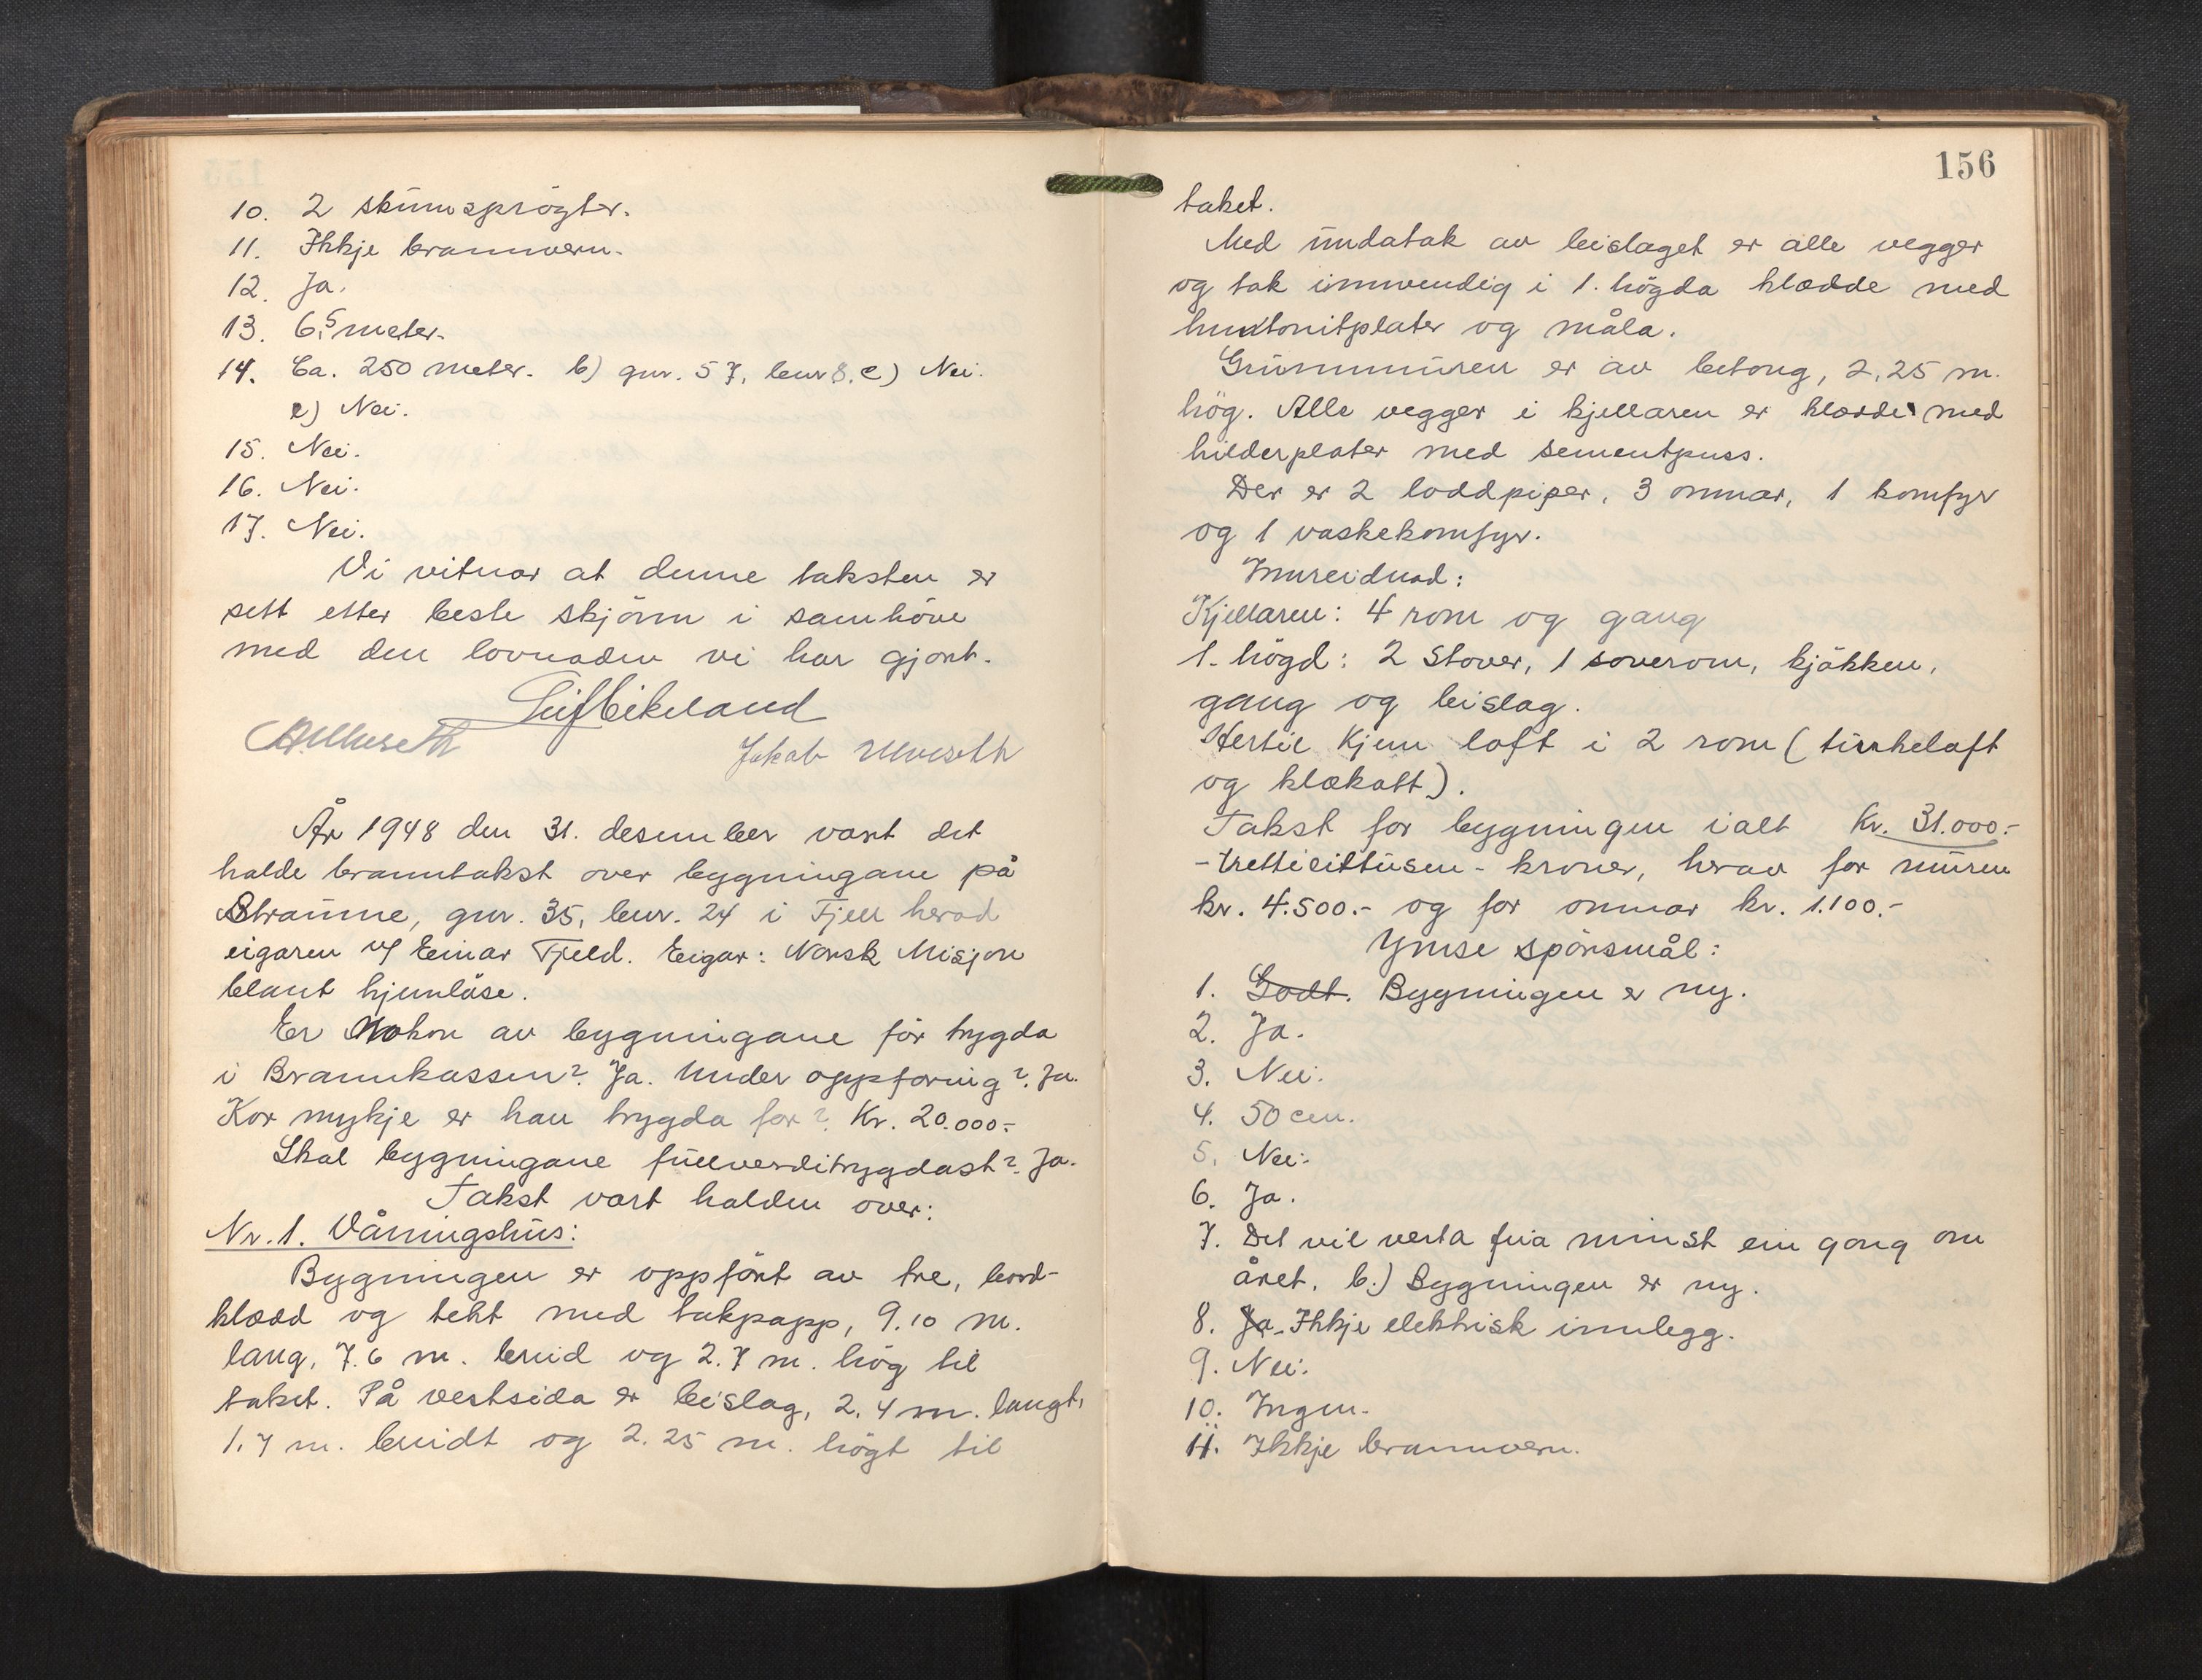 10. 2 skumsprøgter.
11. Ikkje brannvern.
12. Ja.
13. 6,5 meter.
14. Ca. 250 meter. b) gnr. 57, bnr 8. c) Nei.
e) Nei.
15. Nei.
16. Nei.
17. Nei.
Vi vitnar at denne taksten er
sett etter beste skjönn i samhöve
med den lovnaden vi har gjort.
Leif Eikeland
Jakob Ulveseth
År 1948 den 31. desember vart det
halde branntakst over bygningane på
Straume, gnr. 35, bnr. 24 i Fjell herad
eigaren v/ Einar Fjeld. Eigar: Norsk Misjon
blant hjemlöse.
Er Nokon av bygningane för trygda
i Brannkassen? Ja. Under oppföring? Ja.
Kor mykje er han trygda for? Kr. 20.000.-
Skal bygningane fullverditrygdast? Ja.
Takst vart halden over:
Nr. 1. Våningshus:
Bygningen er oppfört av tre, bord-
klædd og tekt med takpapp, 9.10 m.
lang, 7.6 m. breid og 2.7 m. hög til
taket. På vestsida er beislag, 2.4 m. langt,
1.7 m. breidt og 2.25 m. högt til
156
taket.
Med undatak av beislaget er alle vegger
og tak innvendig i 1. högda klædde med
huntonitplater og måla.
Grunnmuren er av betong, 2,25 m.
hög. Alle vegger i kjellaren er klædde med
hilderplater med sementpuss.
Der er 2 loddpiper, 3 omnar, 1 komfyr
og 1 vaskekomfyr.
Innreidnad:
Kjellaren: 4 rom og gang
1. högd: 2 Stover, 1 soverom, kjökken,
gang og beislag.
Hertil kjem loft i 2 rom (turkeloft
og klækott).
Takst for bygningen ialt Kr. 31.000.-
- trettieittusen - kroner, herav for muren
kr. 4.500.- og for omnar kr. 1.100.-
Ymse spörsmål:
1. Godt. Bygningen er ny.
2. Ja.
3. Nei.
4. 50 cm.
5. Nei.
6. Ja.
7. Det vil verta feia minst ein gong om
året. b.) Bygningen er ny.
8. Ja. Ikkje elektrisk innlegg.
9. Nei.
10. Ingen.
11. Ikkje brannvern.